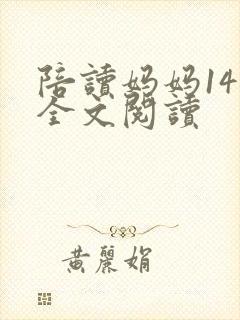 陪讀妈妈14
全文閱讀
黃麗娟